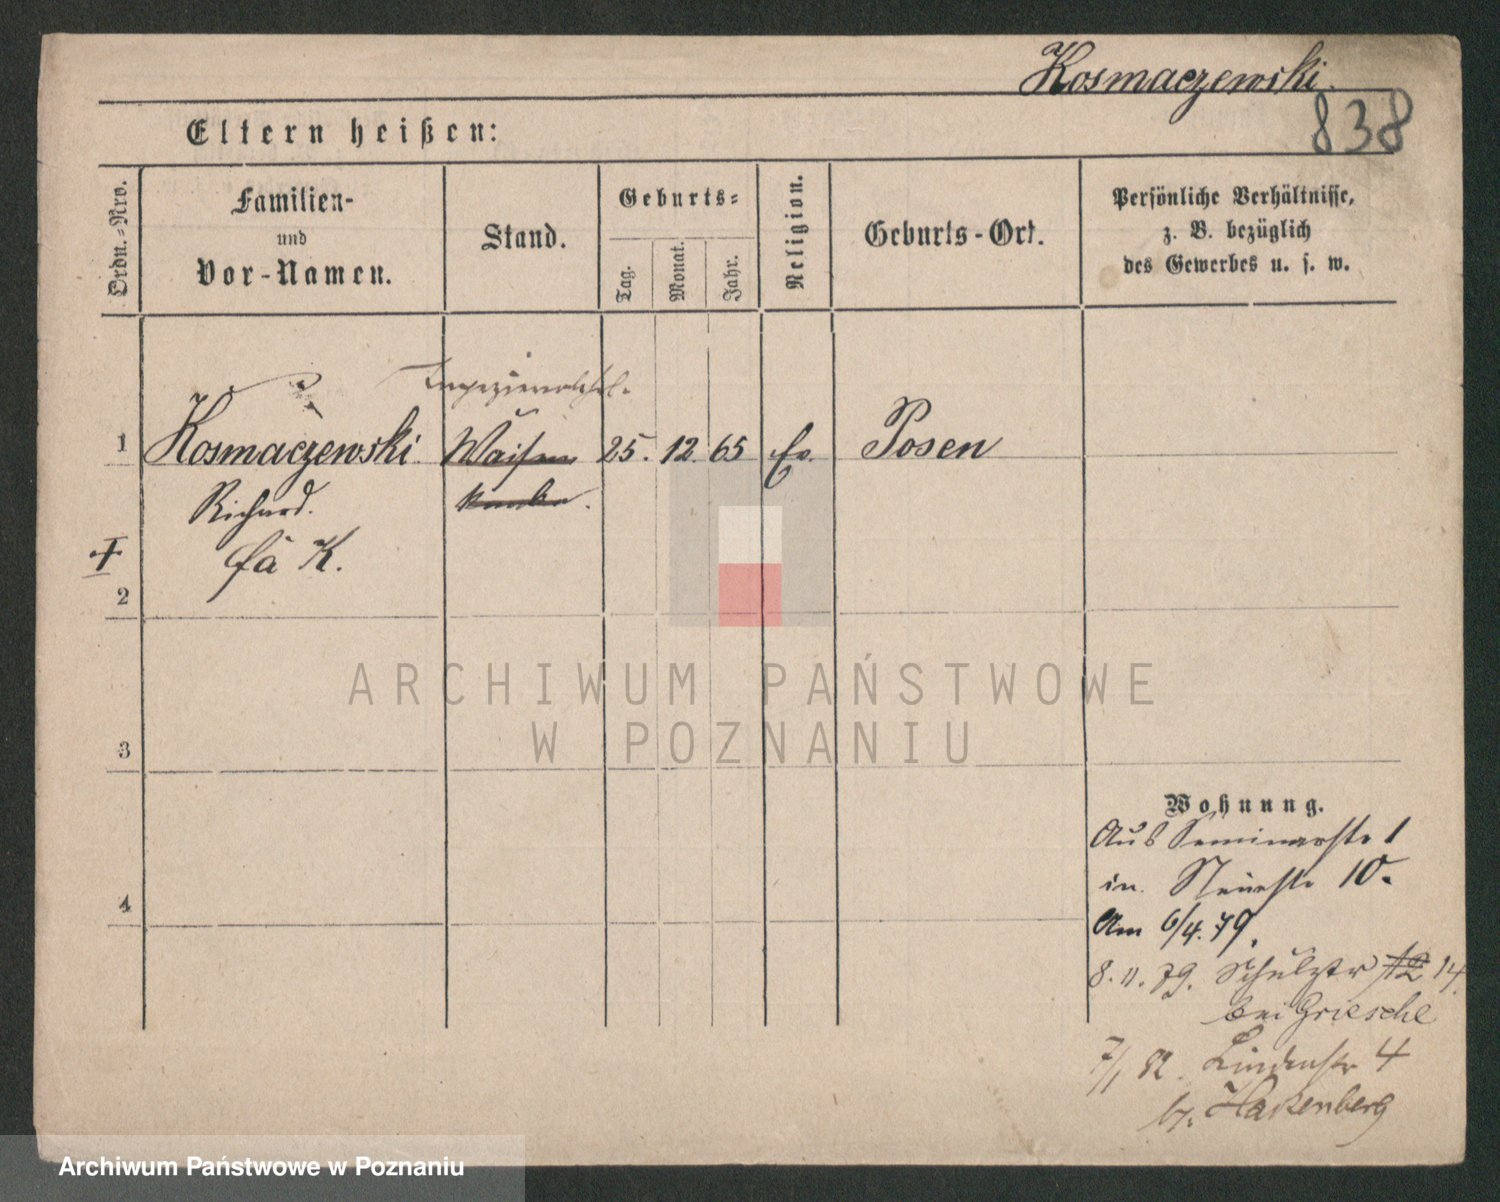 Kosmaczewski.
838
Eltern heißen:
Ordn.-Nro.
Familien-
und
Vor-Namen.
Stand.
Geburts-
Tag.
Monat.
Jahr.
Religion.
Geburts-Ort.
Persönliche Verhältnisse,
z. B. bezüglich
des Gewerbes u. s. w.
1 Kosmaczewski Waisen 25. 12. 65 Ev. Posen
Richard. knabe.
fä K.
2
3
4
Wohnung.
Aus Seminarstr 1
in Neuestr 10.
Am 6/4. 79.
8. 11. 79. Schulstr 12 14.
bei Griesche
7/1 82. Lindenstr 4
b. Hakenberg
ARCHIWUM PAŃSTWOWE
W POZNANIU
Archiwum Państwowe w Poznaniu